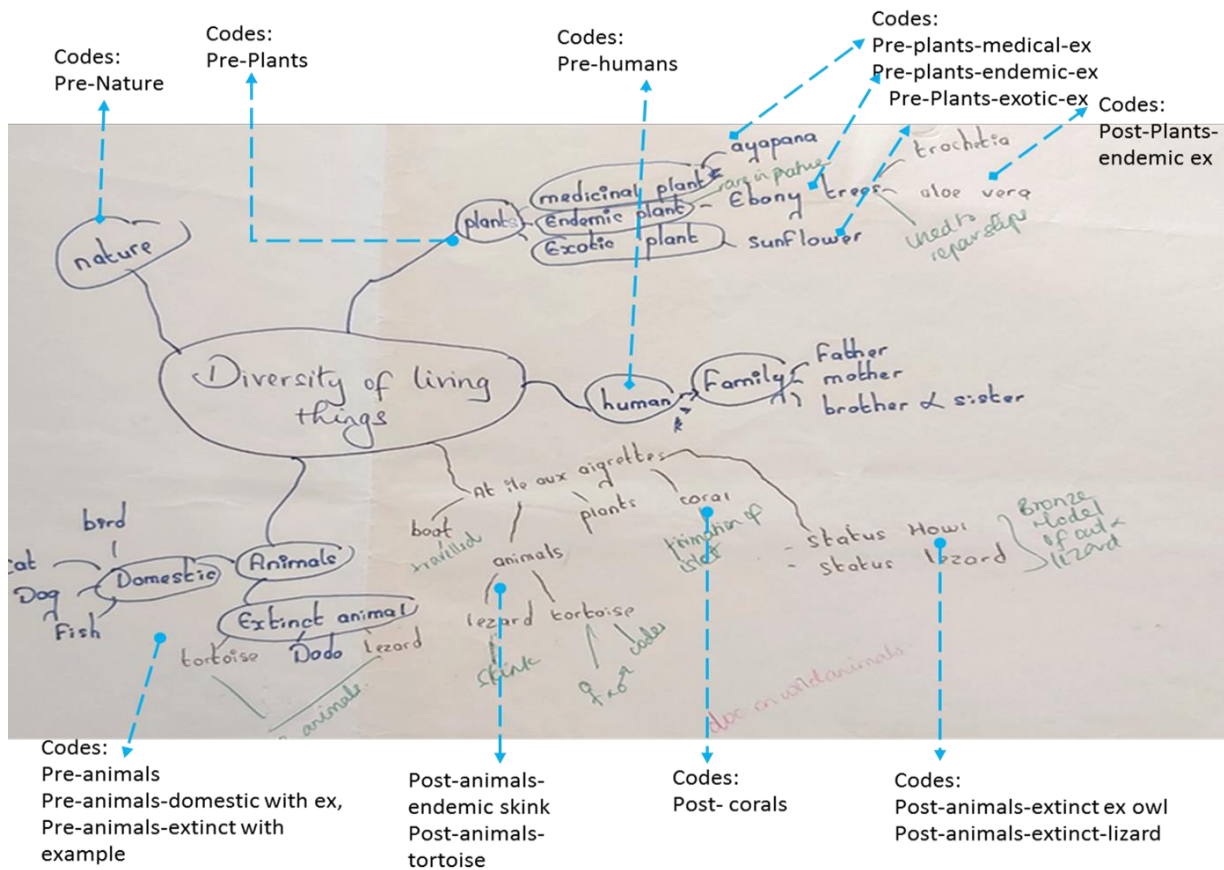 Codes:
Pre-Nature
Codes:
Pre-Plants
Codes:
Pre-humans
Codes:
Pre-plants-medical-ex
Pre-plants-endemic-ex
Pre-Plants-exotic-ex
Codes:
Post-Plants-
endemic ex
nature
plants
medicinal plant
ayapana
Endemic plant
rare in
Ebony trees
trochetia
aloe vera
used to
Exotic plant
sunflower
Diversity of living
things
human
Family
Father
mother
brother & sister
At ile aux aigrettes
boat
travelled
animals
lezard
skink
tortoise
♀ & ♂
codes
plants
coral
formation of
islet
- Status Howl
- Status lezard
Bronze
Model
of owl &
lizard
bird
cat
Dog
Fish
Domestic
Animals
Extinct animal
tortoise
Dodo
lezard
animals
doc on wild animals
Codes:
Pre-animals
Pre-animals-domestic with ex,
Pre-animals-extinct with
example
Post-animals-
endemic skink
Post-animals-
tortoise
Codes:
Post- corals
Codes:
Post-animals-extinct ex owl
Post-animals-extinct-lizard